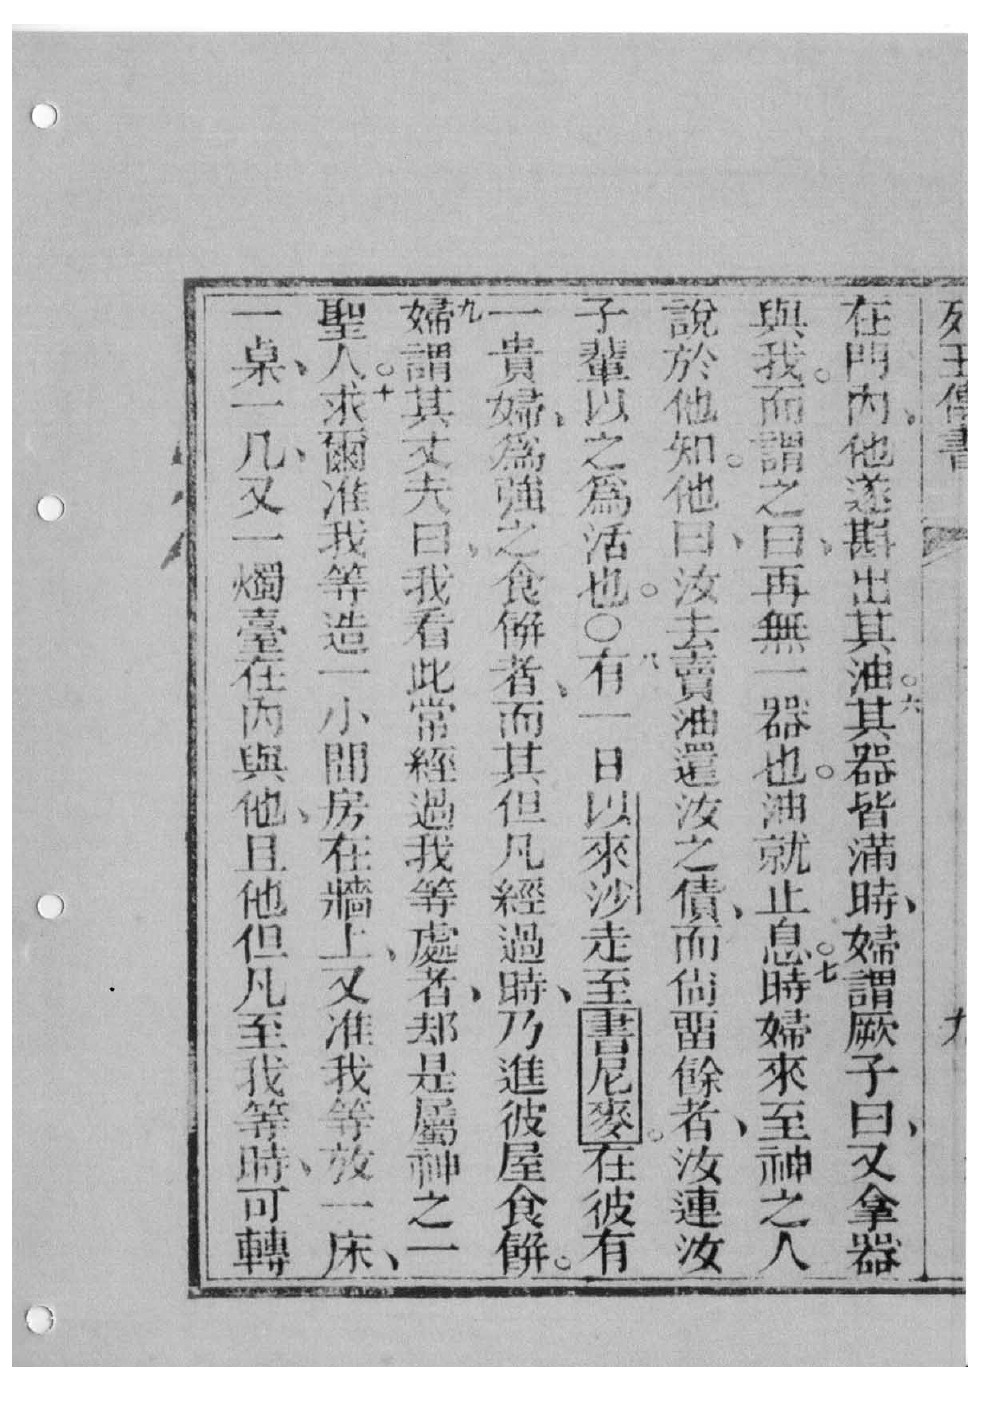 列王傳書 九
在門內、他遂斟出其油。六其器皆滿時、婦謂厥子曰、又拿器
與我。而謂之曰、再無一器也。油就止息。七時婦來至神之人
說於他知。他曰、汝去賣油還汝之債、而倘畱餘者、汝連汝
子輩以之為活也。〇八有一日以來沙走至書尼麥。在彼有
一貴婦、爲強之食餅者、而其但凡經過時、乃進彼屋食餅。
九婦謂其丈夫曰、我看此常經過我等處者、却是屬神之一
聖人。十求爾准我等造一小間房在牆上、又准我等放一床、
一桌、一几、又一燭臺在內與他、且他但凡至我等時、可轉